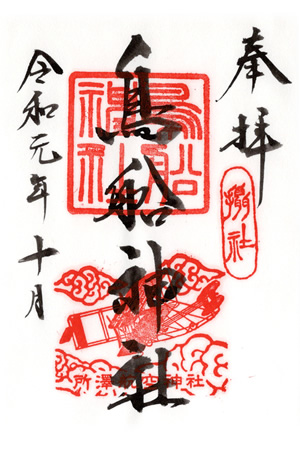 奉拝
攝社
鳥船神社
鳥船神社
所澤航空神社
令和元年十月